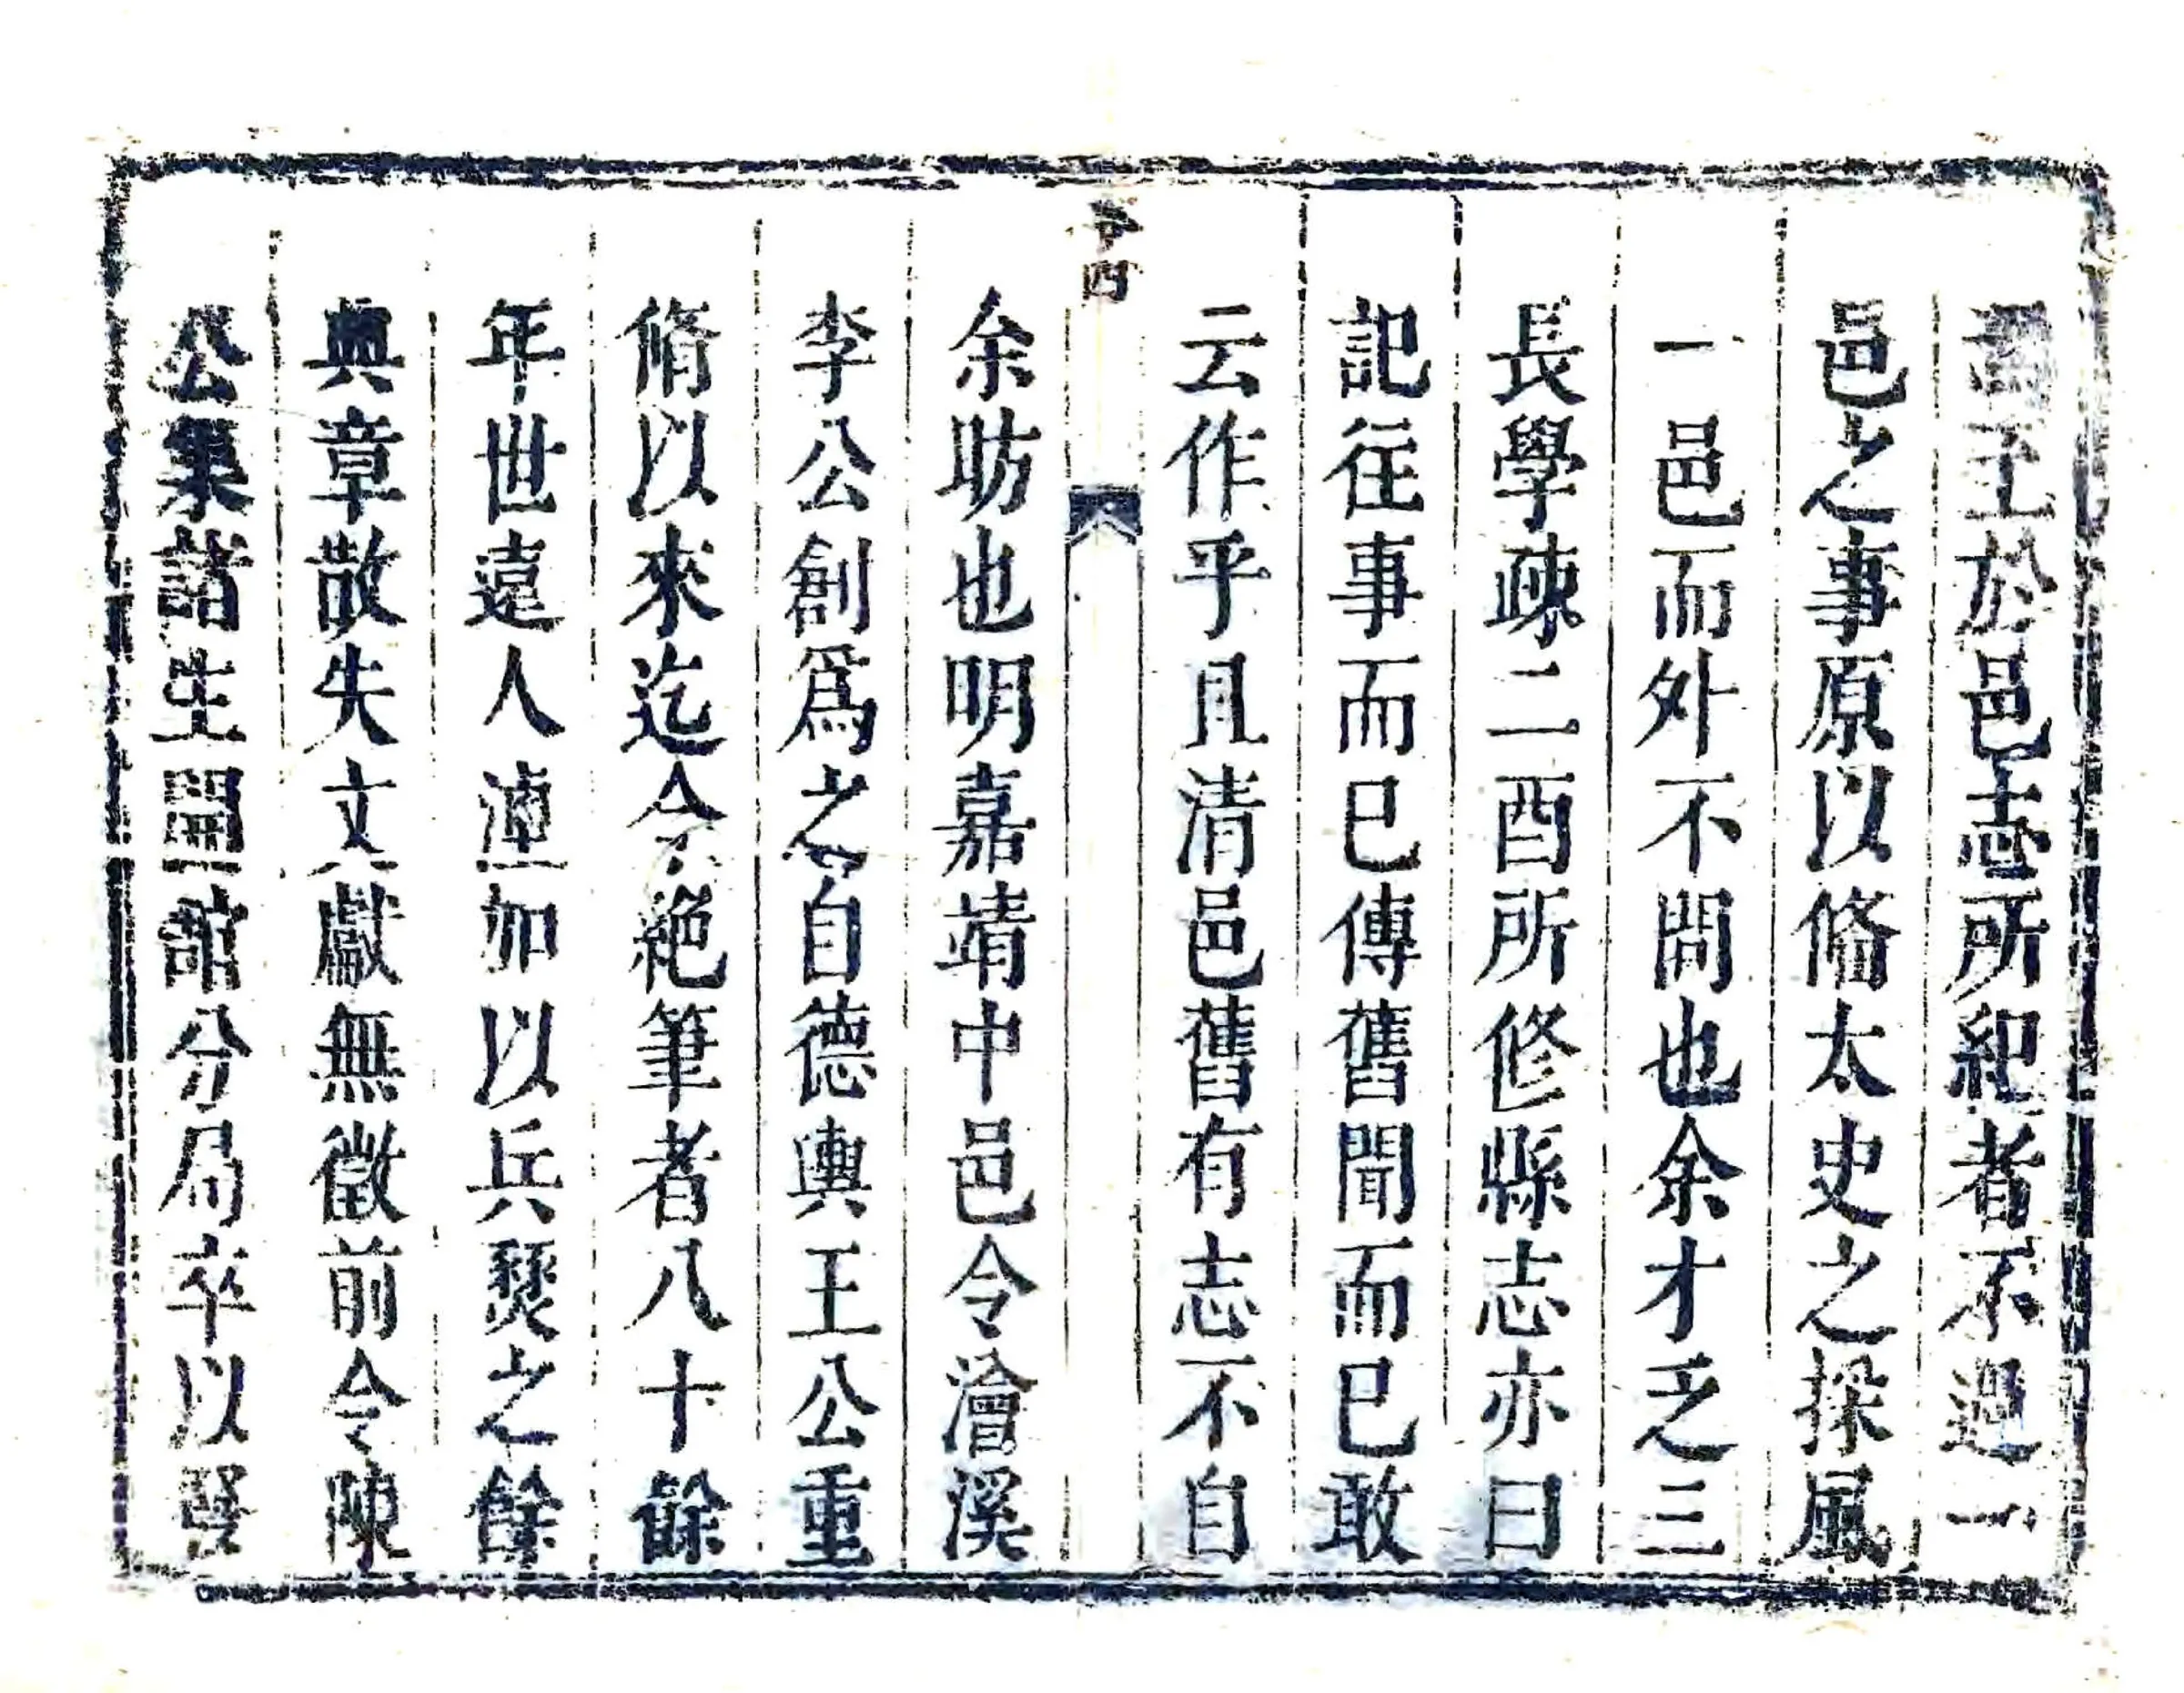 至於邑志所紀者不過一
邑之事原以脩太史之採風
一邑而外不問也余才乏三
長學疎二酉所修縣志亦曰
記往事而已傳舊聞而已敢
云作乎且清邑舊有志不自
四
余昉也明嘉靖中邑令澮溪
李公創爲之自德輿王公重
脩以來迄今絕筆者八十餘
年世遠人湮加以兵燹之餘
典章散失文獻無徵前令陳
公集諸生開館分局卒以